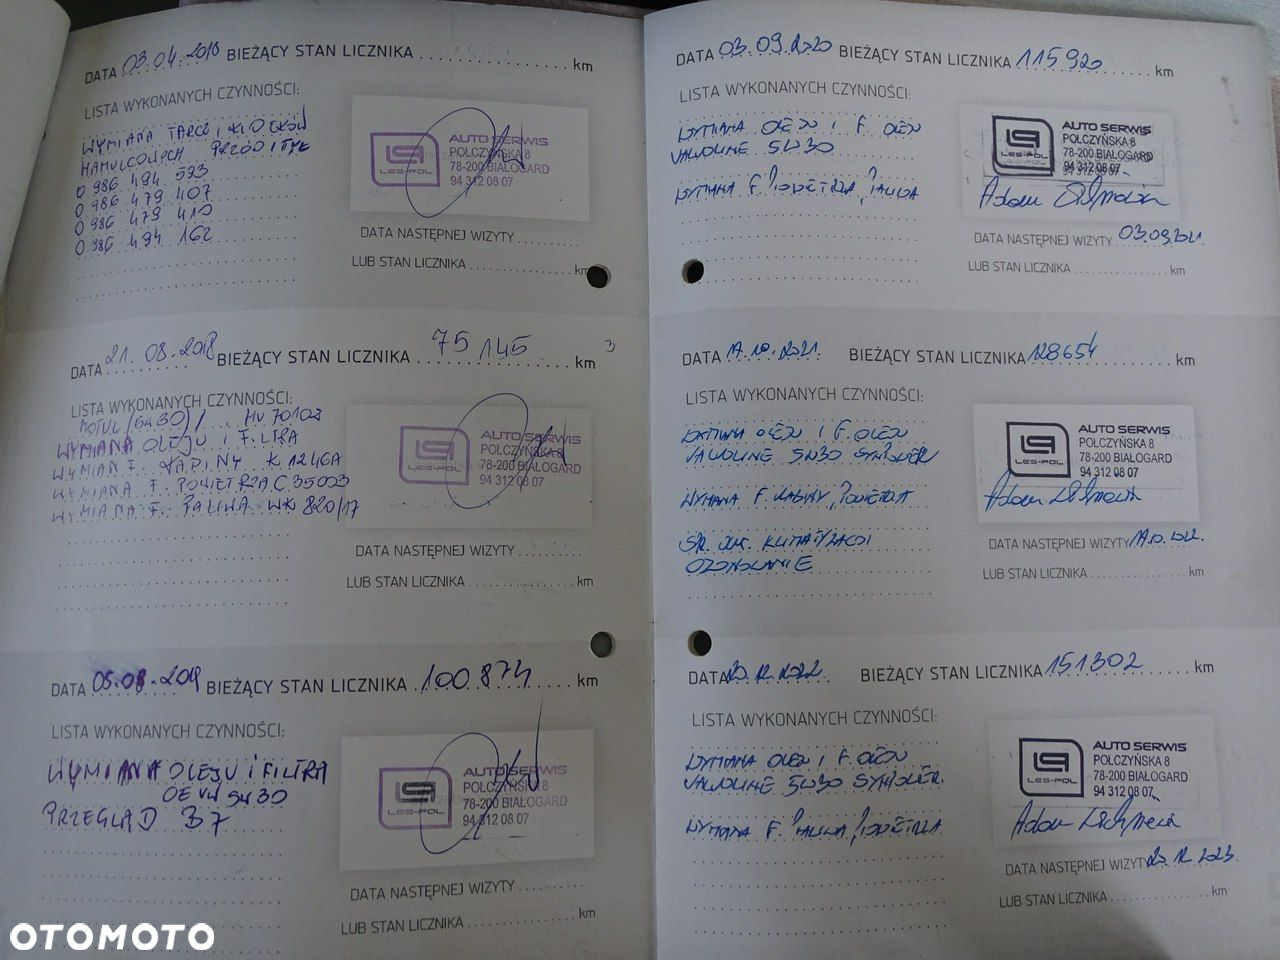 DATA 03.04.2018 BIEŻĄCY STAN LICZNIKA km
LISTA WYKONANYCH CZYNNOŚCI:
WYMIANA TARCZ I KLOCKÓW
HAMULCOWYCH PRZÓD I TYŁ
0 986 494 593
0 986 479 407
0 986 479 410
0 986 494 162
LES-POL
AUTO SERWIS
POŁCZYŃSKA 8
78-200 BIAŁOGARD
94 312 08 07
DATA NASTĘPNEJ WIZYTY
LUB STAN LICZNIKA km
DATA 21.08.2018 BIEŻĄCY STAN LICZNIKA 75 145 km
LISTA WYKONANYCH CZYNNOŚCI:
MOTUL (5W30)
WYMIANA OLEJU I FILTRA
WYMIANA F. KABINY K 1246A
WYMIANA F. POWIETRZA C 35003
WYMIANA F. PALIWA WK 820/17
LES-POL
AUTO SERWIS
POŁCZYŃSKA 8
78-200 BIAŁOGARD
94 312 08 07
DATA NASTĘPNEJ WIZYTY
LUB STAN LICZNIKA km
DATA 05.08.2019 BIEŻĄCY STAN LICZNIKA 100 874 km
LISTA WYKONANYCH CZYNNOŚCI:
WYMIANA OLEJU I FILTRA
OE VW 5W30
PRZEGLĄD
LES-POL
AUTO SERWIS
POŁCZYŃSKA 8
78-200 BIAŁOGARD
94 312 08 07
DATA NASTĘPNEJ WIZYTY
LUB STAN LICZNIKA km
DATA 03.09.2020 BIEŻĄCY STAN LICZNIKA 115920 km
LISTA WYKONANYCH CZYNNOŚCI:
WYMIANA OLEJU I F. OLEJU
VALVOLINE 5W30
WYMIANA F. POWIETRZA, PALIWA
LES-POL
AUTO SERWIS
POŁCZYŃSKA 8
78-200 BIAŁOGARD
94 312 08 07
Adam
DATA NASTĘPNEJ WIZYTY 03.09.2021
LUB STAN LICZNIKA km
DATA 17.10.2021 BIEŻĄCY STAN LICZNIKA 128654 km
LISTA WYKONANYCH CZYNNOŚCI:
WYMIANA OLEJU I F. OLEJU
VALVOLINE 5W30 SYNPOWER
WYMIANA F. KABINY, POWIETRZA
KLIMATYZACJI
OZONOWANIE
LES-POL
AUTO SERWIS
POŁCZYŃSKA 8
78-200 BIAŁOGARD
94 312 08 07
Adam
DATA NASTĘPNEJ WIZYTY 17.10.2022
LUB STAN LICZNIKA km
DATA 20.12.2022 BIEŻĄCY STAN LICZNIKA 151302 km
LISTA WYKONANYCH CZYNNOŚCI:
WYMIANA OLEJU I F. OLEJU
VALVOLINE 5W30 SYNPOWER
WYMIANA F. PALIWA, POWIETRZA
LES-POL
AUTO SERWIS
POŁCZYŃSKA 8
78-200 BIAŁOGARD
94 312 08 07
Adam
DATA NASTĘPNEJ WIZYTY 20.12.2023
LUB STAN LICZNIKA km
OTOMOTO